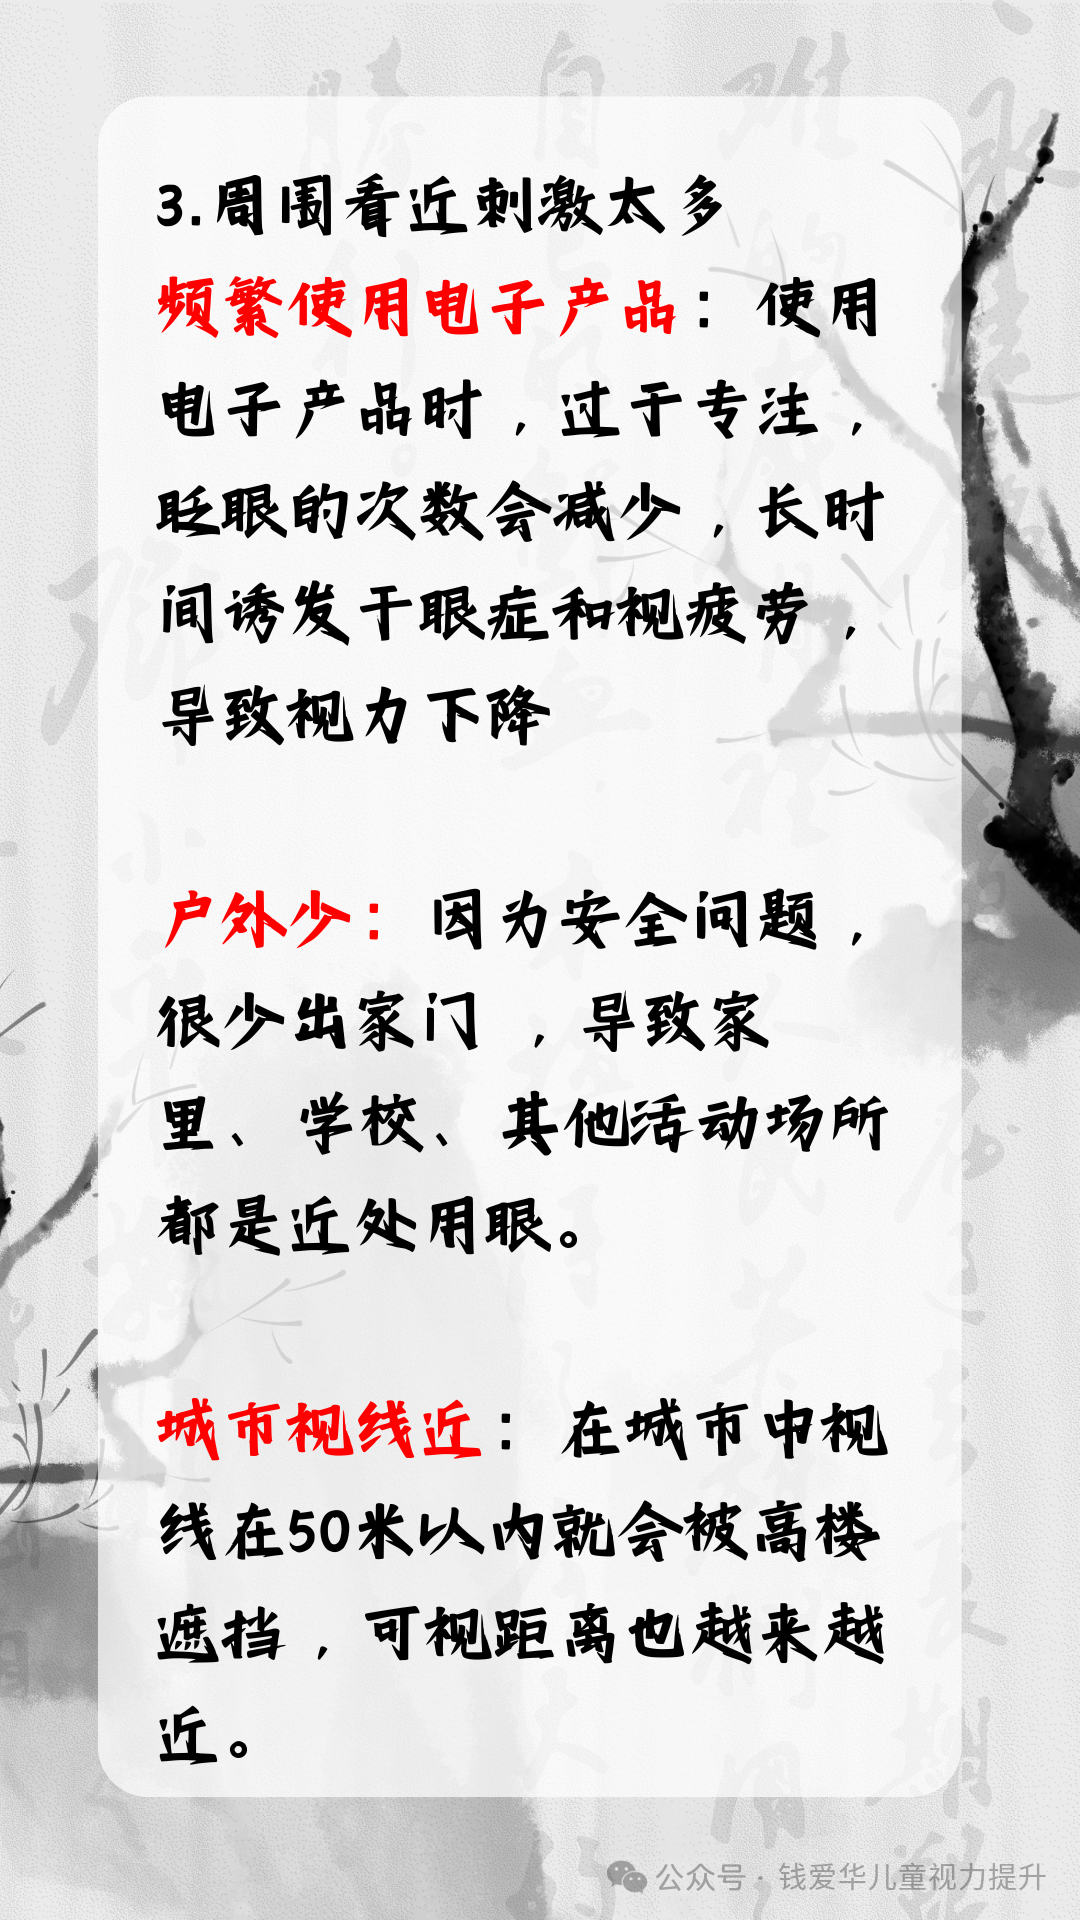 3.周围看近刺激太多
频繁使用电子产品：使用
电子产品时，过于专注，
眨眼的次数会减少，长时
间诱发干眼症和视疲劳，
导致视力下降
户外少：因为安全问题，
很少出家门 ，导致家
里、学校、其他活动场所
都是近处用眼。
城市视线近：在城市中视
线在50米以内就会被高楼
遮挡，可视距离也越来越
近。
公众号·钱爱华儿童视力提升